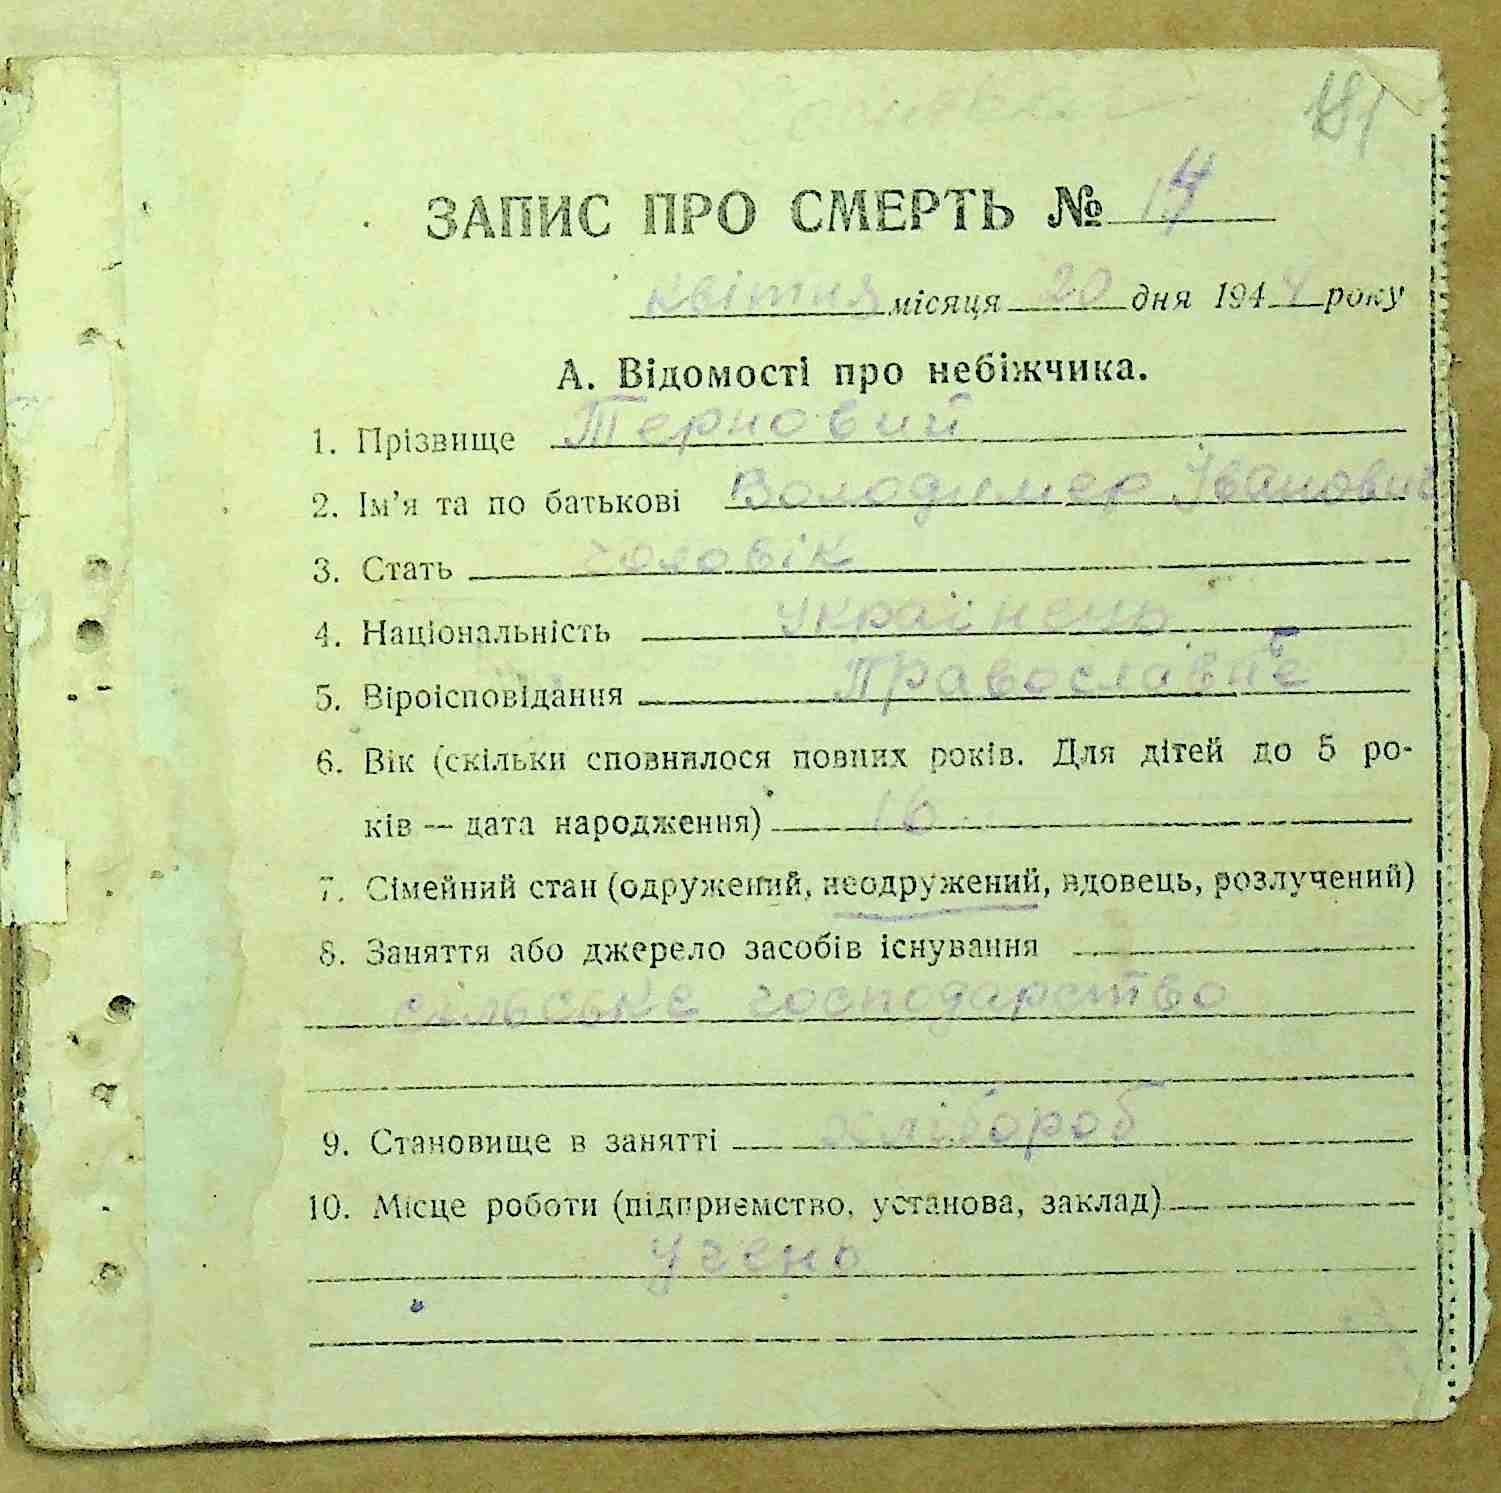 ЗАПИС ПРО СМЕРТЬ № 14
квітня місяця 20 дня 1944 року
А. Відомості про небіжчика.
1. Прізвище Терновий
2. Ім'я та по батькові Володимер Іванович
3. Стать чоловік
4. Національність українець
5. Віроісповідання Православне
6. Вік (скільки сповнилося повних років. Для дітей до 5 ро-
ків — дата народження) 16
7. Сімейний стан (одружений, неодружений, вдовець, розлучений)
8. Заняття або джерело засобів існування
сільське господарство
9. Становище в занятті хлібороб
10. Місце роботи (підприємство, установа, заклад)
учень